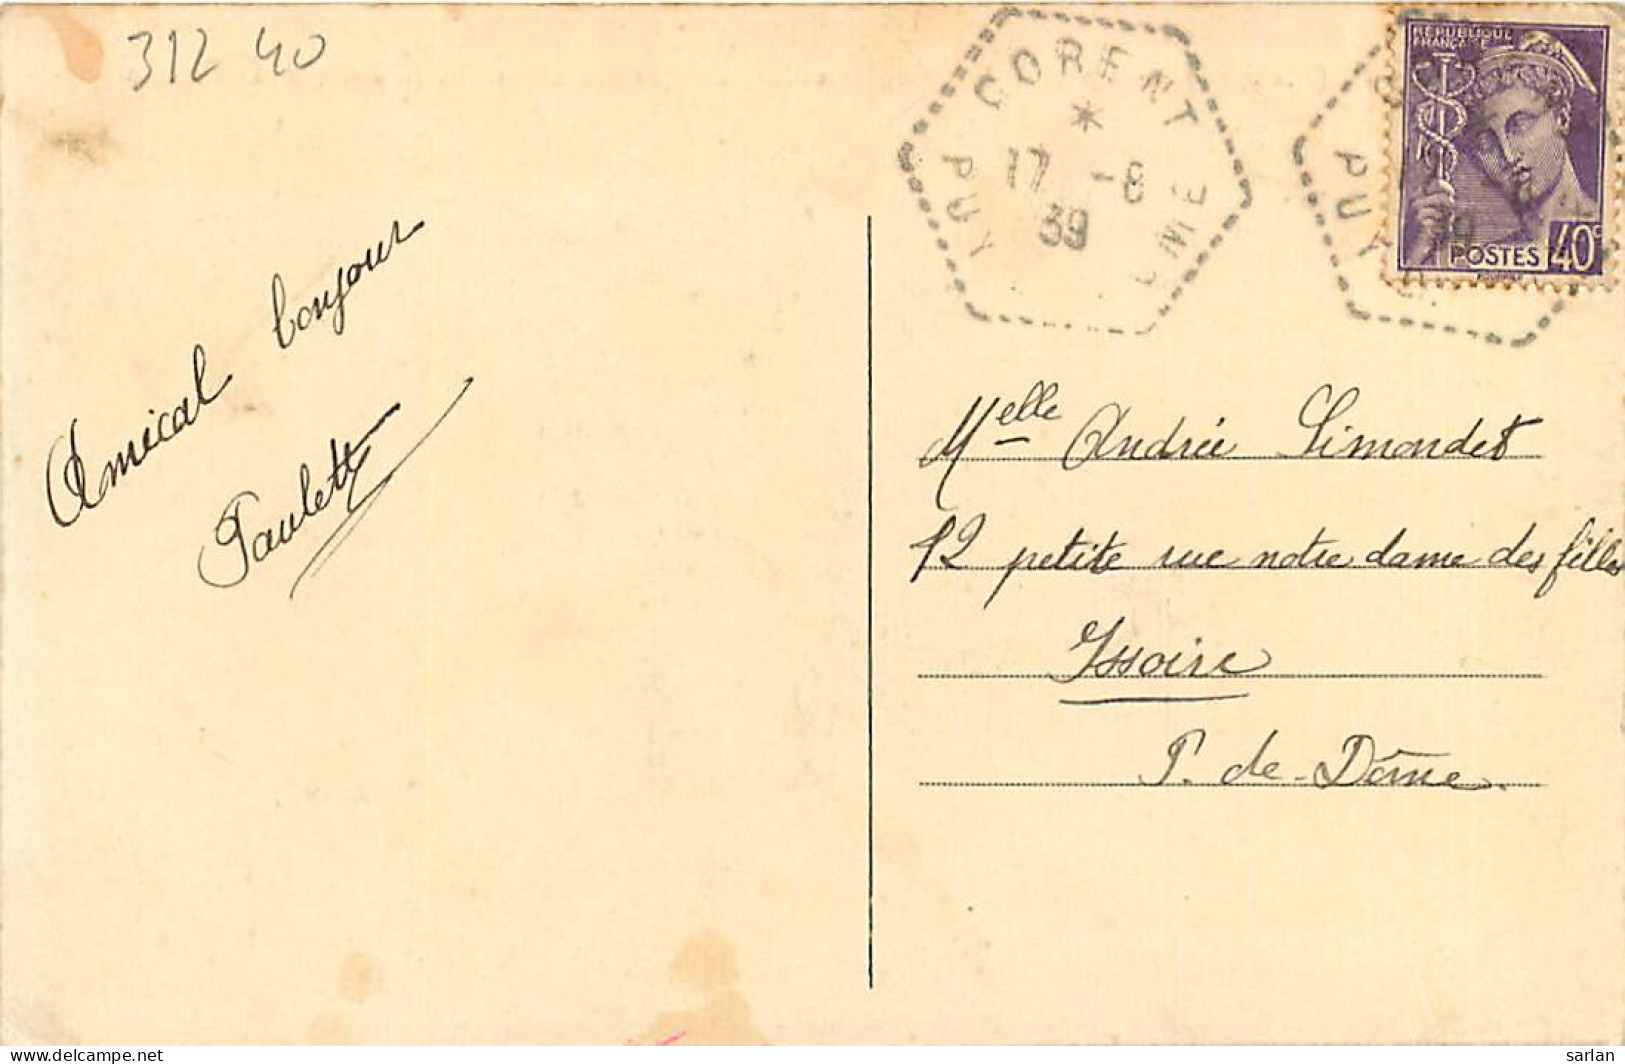 312 40
CORENT
*
17 -8
39
PUY
DOME
RÉPUBLIQUE
FRANÇAISE
POSTES 40c
PUY
39
Amical bonjour
Paulette
Melle Andrée Simondet
12 petite rue notre dame des filles
Issoire
P. de-Dôme.
delcampe.net
sarlan